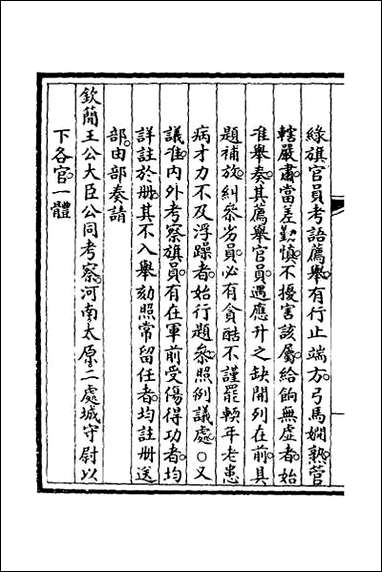 綠旗官員考語薦舉有行止端方弓馬嫻熟管
轄嚴肅當差勤慎不擾害該屬給餉無虛者始
准舉奏其薦舉官員遇應升之缺開列在前具
題補放糾參劣員必有貪酷不謹罷輭年老患
病才力不及浮躁者始行題參照例議處○又
議准內外考察旗員有在軍前受傷得功者均
詳註於册其不入舉劾照常留任者均註册送
部由部奏請
欽簡王公大臣公同考察河南太原二處城守尉以
下各官一體